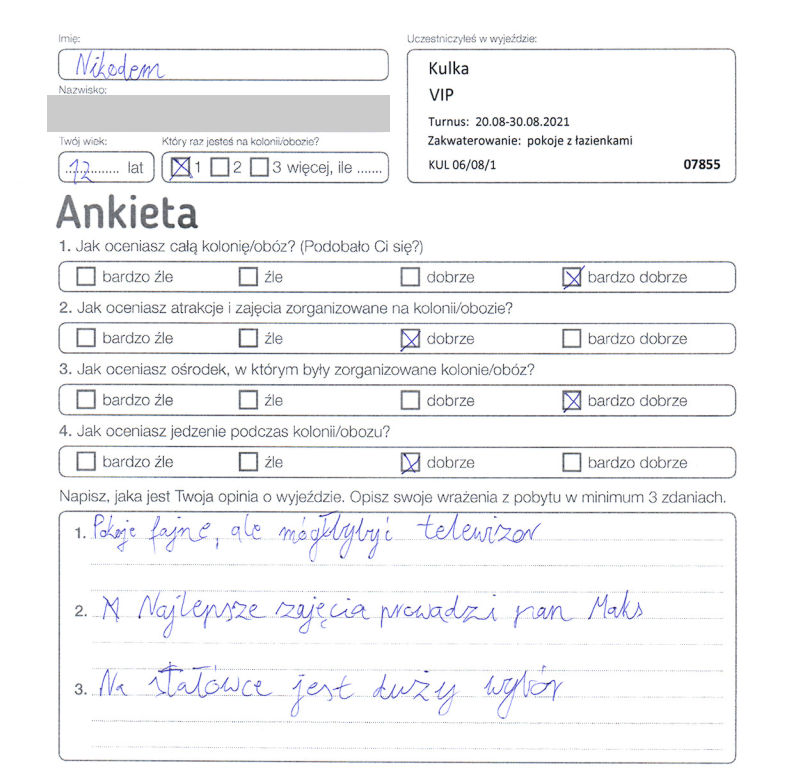 Imię:
Nikodem
Nazwisko:
Twój wiek:
12 lat
Który raz jesteś na kolonii/obozie?
1 2 3 więcej, ile .......
Uczestniczyłeś w wyjeździe:
Kulka
VIP
Turnus: 20.08-30.08.2021
Zakwaterowanie: pokoje z łazienkami
KUL 06/08/1 07855
Ankieta
1. Jak oceniasz całą kolonię/obóz? (Podobało Ci się?)
bardzo źle źle dobrze bardzo dobrze
2. Jak oceniasz atrakcje i zajęcia zorganizowane na kolonii/obozie?
bardzo źle źle dobrze bardzo dobrze
3. Jak oceniasz ośrodek, w którym były zorganizowane kolonie/obóz?
bardzo źle źle dobrze bardzo dobrze
4. Jak oceniasz jedzenie podczas kolonii/obozu?
bardzo źle źle dobrze bardzo dobrze
Napisz, jaka jest Twoja opinia o wyjeździe. Opisz swoje wrażenia z pobytu w minimum 3 zdaniach.
1. Pokoje fajne, ale mógłbybyć telewizor
2. Najlepsze zajęcia prowadzi pan Maks
3. Na stałówce jest duży wybór